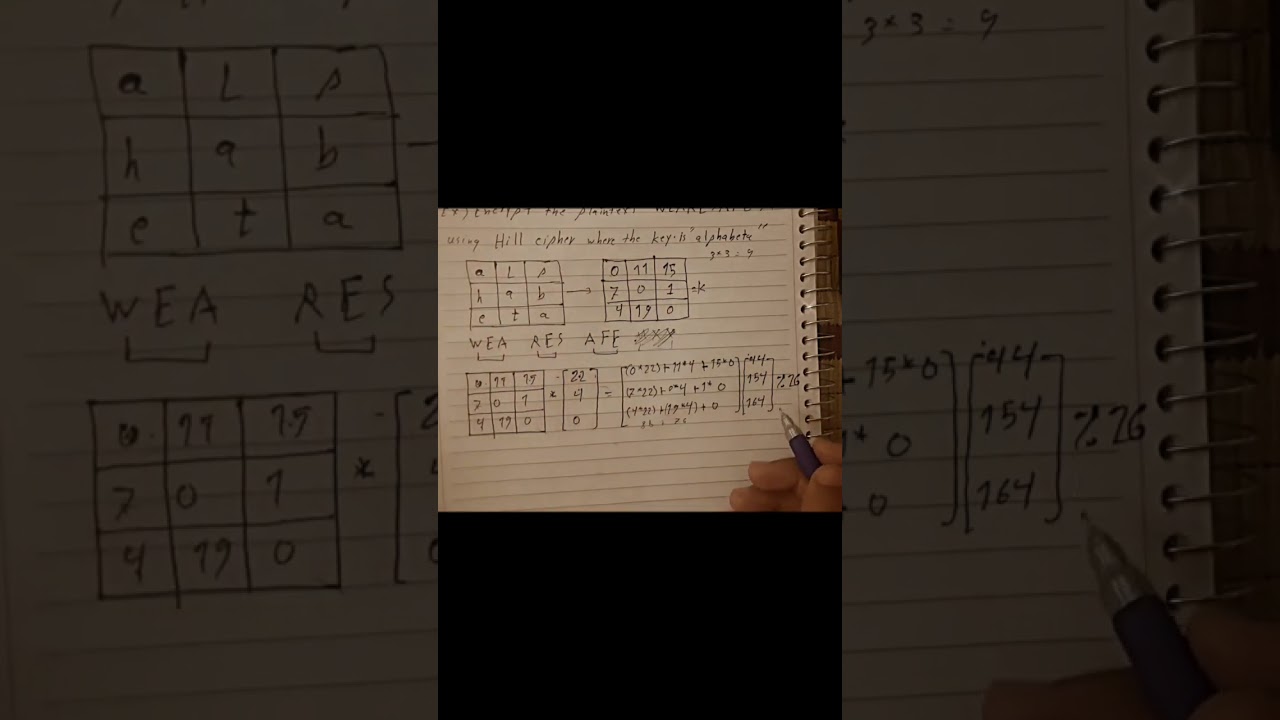 encrypt the plaintext
using Hill cipher where the key is "alphabeta"
3*3 = 9
a L p 0 11 15
h a b → 7 0 1 = K
e t a 4 19 0
WEA RES AFE
0 11 15 22 (0*22)+11*4+15*0 44
7 0 1 * 4 = (7*22)+0*4+1*0 154 % 26
4 19 0 0 (4*22)+(19*4)+0 164